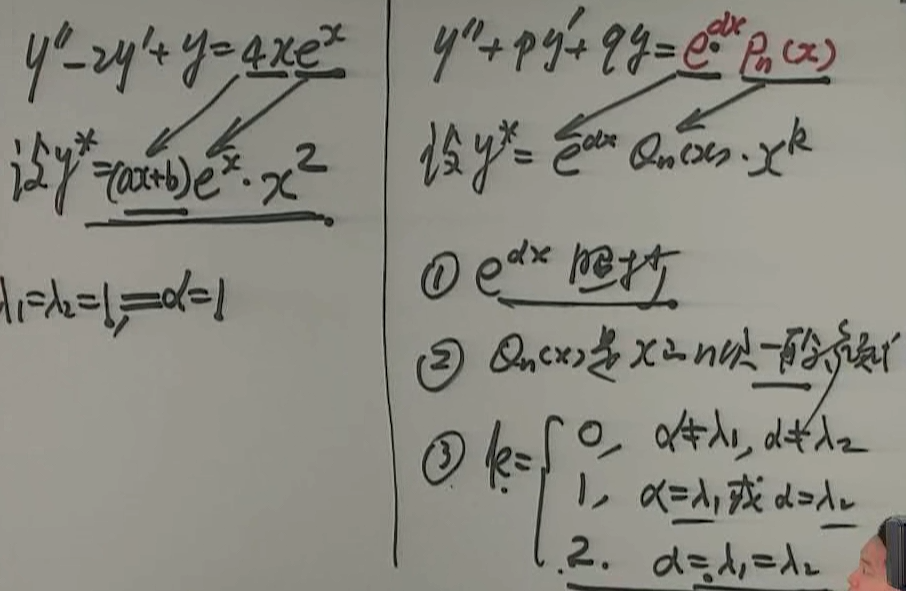 y''-2y'+y=4xeˣ
设y*=(ax+b)eˣ·x²
λ₁=λ₂=1,=α=1
y''+py'+qy=e^{αx}·Pₙ(x)
设y*=e^{αx}Qₙ(x)·x^k
① e^{αx}照抄
② Qₙ(x)是x的n次一般多项式
③ k={0, α≠λ₁, α≠λ₂
1, α=λ₁或α=λ₂
2. α=λ₁=λ₂